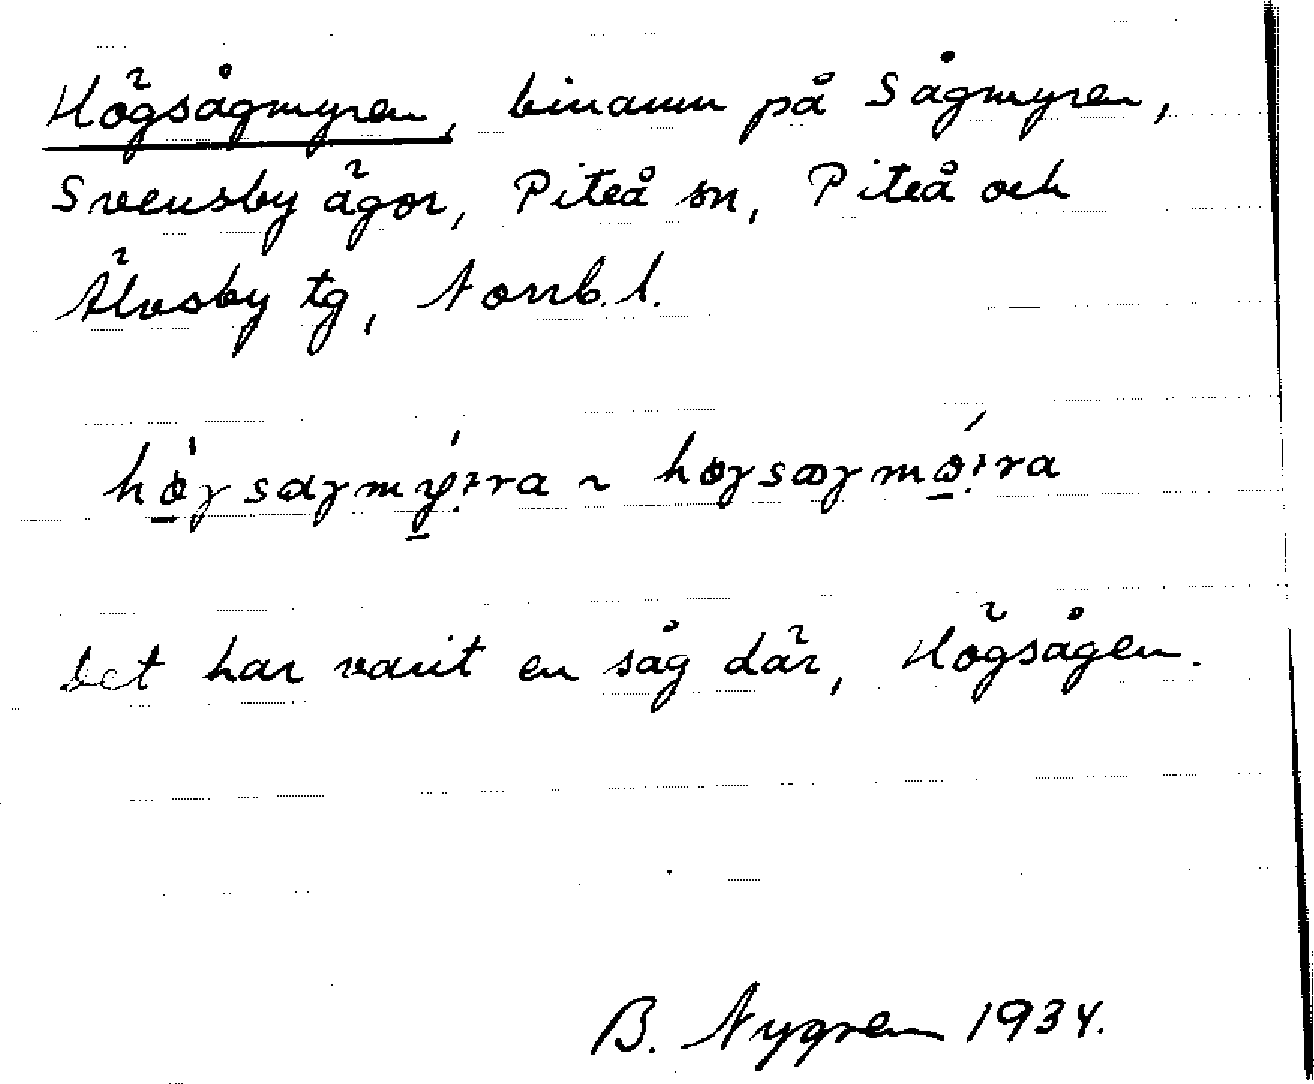 Högsågmyren, binamn på Sågmyren,
Svensby ägor, Piteå sn, Piteå och
Älvsby tg, Norrb. l.
Det har varit en såg där, Högsågen.
B. Nygren 1934.